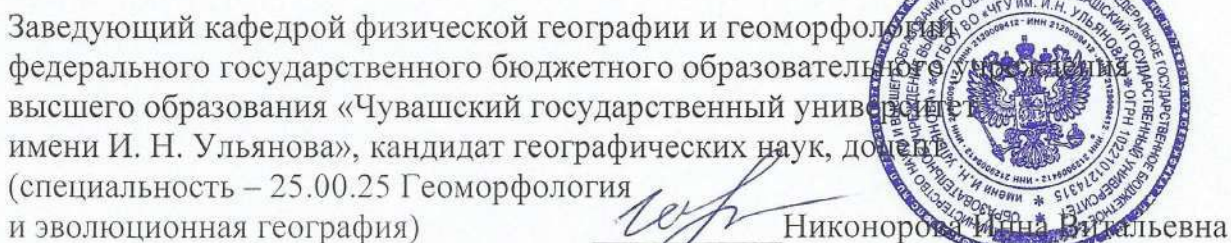 Заведующий кафедрой физической географии и геоморфологии
федерального государственного бюджетного образовательного учреждения
высшего образования «Чувашский государственный университет
имени И. Н. Ульянова», кандидат географических наук, доцент
(специальность – 25.00.25 Геоморфология
и эволюционная география) Никонорова Инна Витальевна